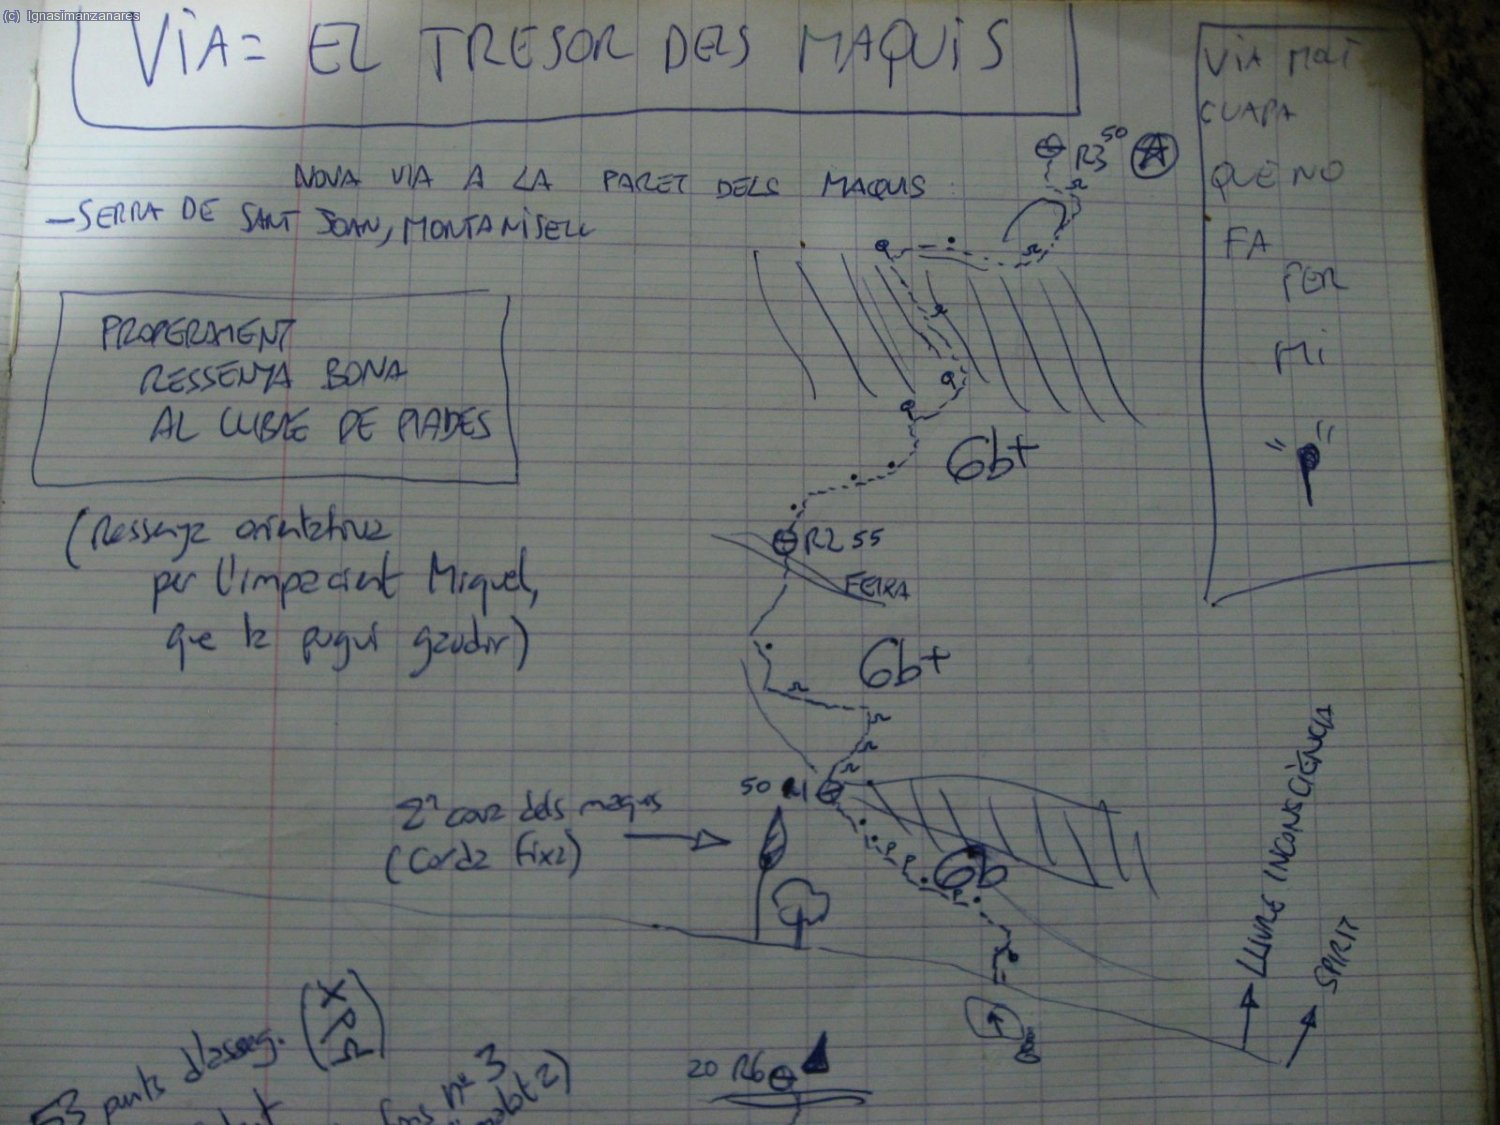 (c) Ignasimanzanares
VIA= EL TRESOR DELS MAQUIS
NOVA VIA A LA PARET DELS MAQUIS
-SERRA DE SANT JOAN, MONTANISELL
PROPERAMENT
RESSENYA BONA
AL LLIBRE DE PIADES
(Ressenya orientativa
per l'impacient Miquel,
que la pugui gaudir)
VIA MOLT
GUAPA
QUE NO
FA
PER
MI
"P"
R3 50
6b+
R2 55
FEIXA
6b+
50 R1
2ª cova dels maquis
(Corda fixa)
6b
LLIURE INCONSCIÈNCIA
SPIRIT
20 R6
53 punts d'asseg.
(XRP)
fins nº 3